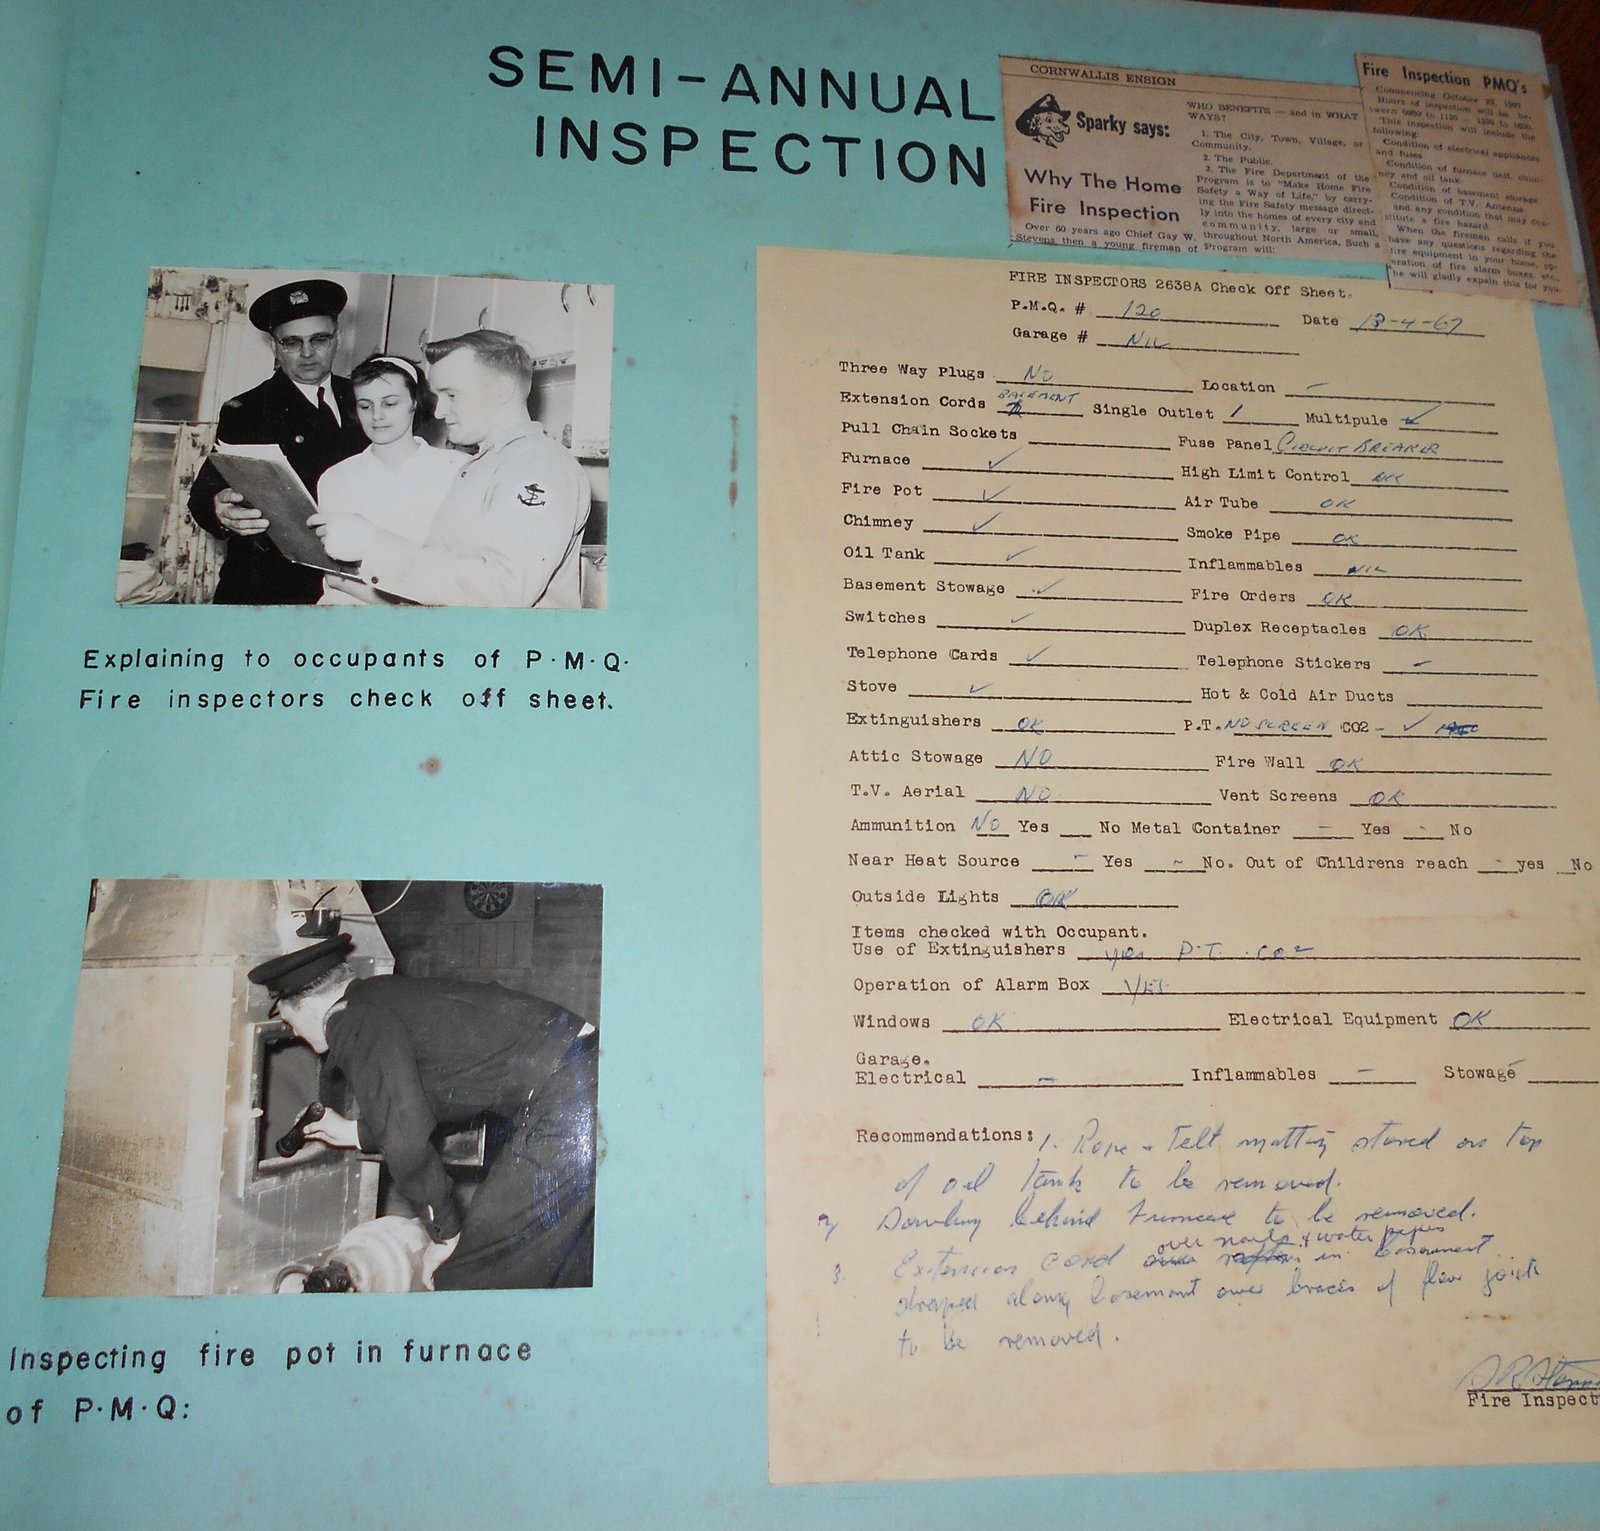 SEMI-ANNUAL
INSPECTION
CORNWALLIS ENSIGN
Sparky says:
Why The Home
Fire Inspection
Over 60 years ago Chief Gay W.
Stevens then a young fireman of
WHO BENEFITS — and in WHAT
WAYS?
1. The City, Town, Village, or
Community.
2. The Public.
3. The Fire Department of the
Program is to "Make Home Fire
Safety a Way of Life," by carry-
ing the Fire Safety message direct-
ly into the homes of every city and
community, large or small,
throughout North America, Such a
Program will:
Fire Inspection PMQ's
Commencing October 23, 1961
Hours of inspection will be be-
tween 0900 to 1130 — 1330 to 1600.
This inspection will include the
following:
Condition of electrical appliances
and fuses
Condition of furnace unit, chim-
ney and oil tank
Condition of basement storage
Condition of T.V. Antenna
and any condition that may con-
stitute a fire hazard.
When the fireman calls if you
have any questions regarding the
fire equipment in your home, op-
eration of fire alarm boxes, etc.,
he will gladly expain this for you.
Explaining to occupants of P·M·Q·
Fire inspectors check off sheet.
Inspecting fire pot in furnace
of P·M·Q:
FIRE INSPECTORS 2638A Check Off Sheet.
P.M.Q. # 120 Date 18-4-67
Garage # NIL
Three Way Plugs NO Location –
Extension Cords BASEMENT Single Outlet 1 Multipule ✓
Pull Chain Sockets Fuse Panel CIRCUIT BREAKER
Furnace ✓ High Limit Control OK
Fire Pot ✓ Air Tube OK
Chimney ✓ Smoke Pipe OK
Oil Tank ✓ Inflammables NIL
Basement Stowage ✓ Fire Orders OK
Switches ✓ Duplex Receptacles OK
Telephone Cards ✓ Telephone Stickers –
Stove ✓ Hot & Cold Air Ducts
Extinguishers OK P.T. NO SCREEN CO2- ✓
Attic Stowage NO Fire Wall OK
T.V. Aerial NO Vent Screens OK
Ammunition NO Yes No Metal Container – Yes - No
Near Heat Source - Yes - No. Out of Childrens reach - yes No
Outside Lights OK
Items checked with Occupant.
Use of Extinguishers yes P.T. CO2
Operation of Alarm Box YES
Windows OK Electrical Equipment OK
Garage.
Electrical – Inflammables – Stowage –
Recommendations: 1. Rope + Felt matting stored on top
of oil tank to be removed.
2, behind Furnace to be removed.
over nails & water pipes
3. Extension cord in basement
draped along basement over braces of floor joists
to be removed.
Fire Inspect